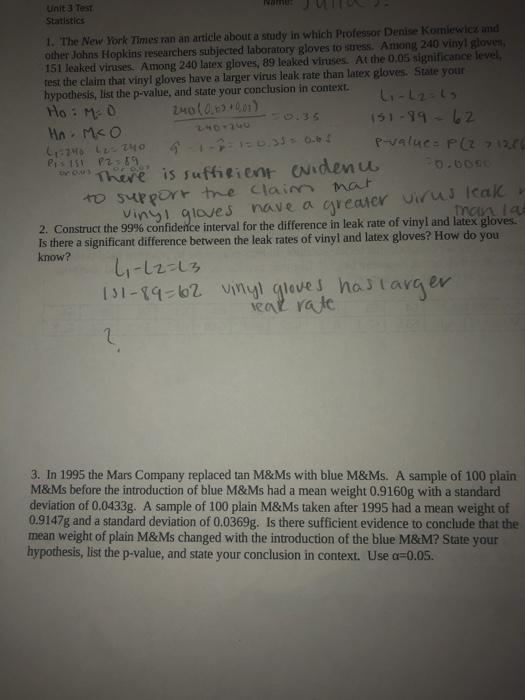 Unit 3 Test
Statistics
1. The New York Times ran an article about a study in which Professor Denise Korniewicz and
other Johns Hopkins researchers subjected laboratory gloves to stress. Among 240 vinyl gloves,
151 leaked viruses. Among 240 latex gloves, 89 leaked viruses. At the 0.05 significance level,
test the claim that vinyl gloves have a larger virus leak rate than latex gloves. State your
hypothesis, list the p-value, and state your conclusion in context.
L1-L2=L3
Ho: M=0
240+240
=0.35
151-89=62
Ha: M<0
L1=240 L2=240
P1=151 P2=89
p-value= P(Z >
There is sufficient evidence
to support the claim that
vinyl gloves have a greater virus leak
than
2. Construct the 99% confidence interval for the difference in leak rate of vinyl and latex gloves.
Is there a significant difference between the leak rates of vinyl and latex gloves? How do you
know?
L1-L2=L3
151-89=62 vinyl gloves has larger
leak rate
?
3. In 1995 the Mars Company replaced tan M&Ms with blue M&Ms. A sample of 100 plain
M&Ms before the introduction of blue M&Ms had a mean weight 0.9160g with a standard
deviation of 0.0433g. A sample of 100 plain M&Ms taken after 1995 had a mean weight of
0.9147g and a standard deviation of 0.0369g. Is there sufficient evidence to conclude that the
mean weight of plain M&Ms changed with the introduction of the blue M&M? State your
hypothesis, list the p-value, and state your conclusion in context. Use α=0.05.